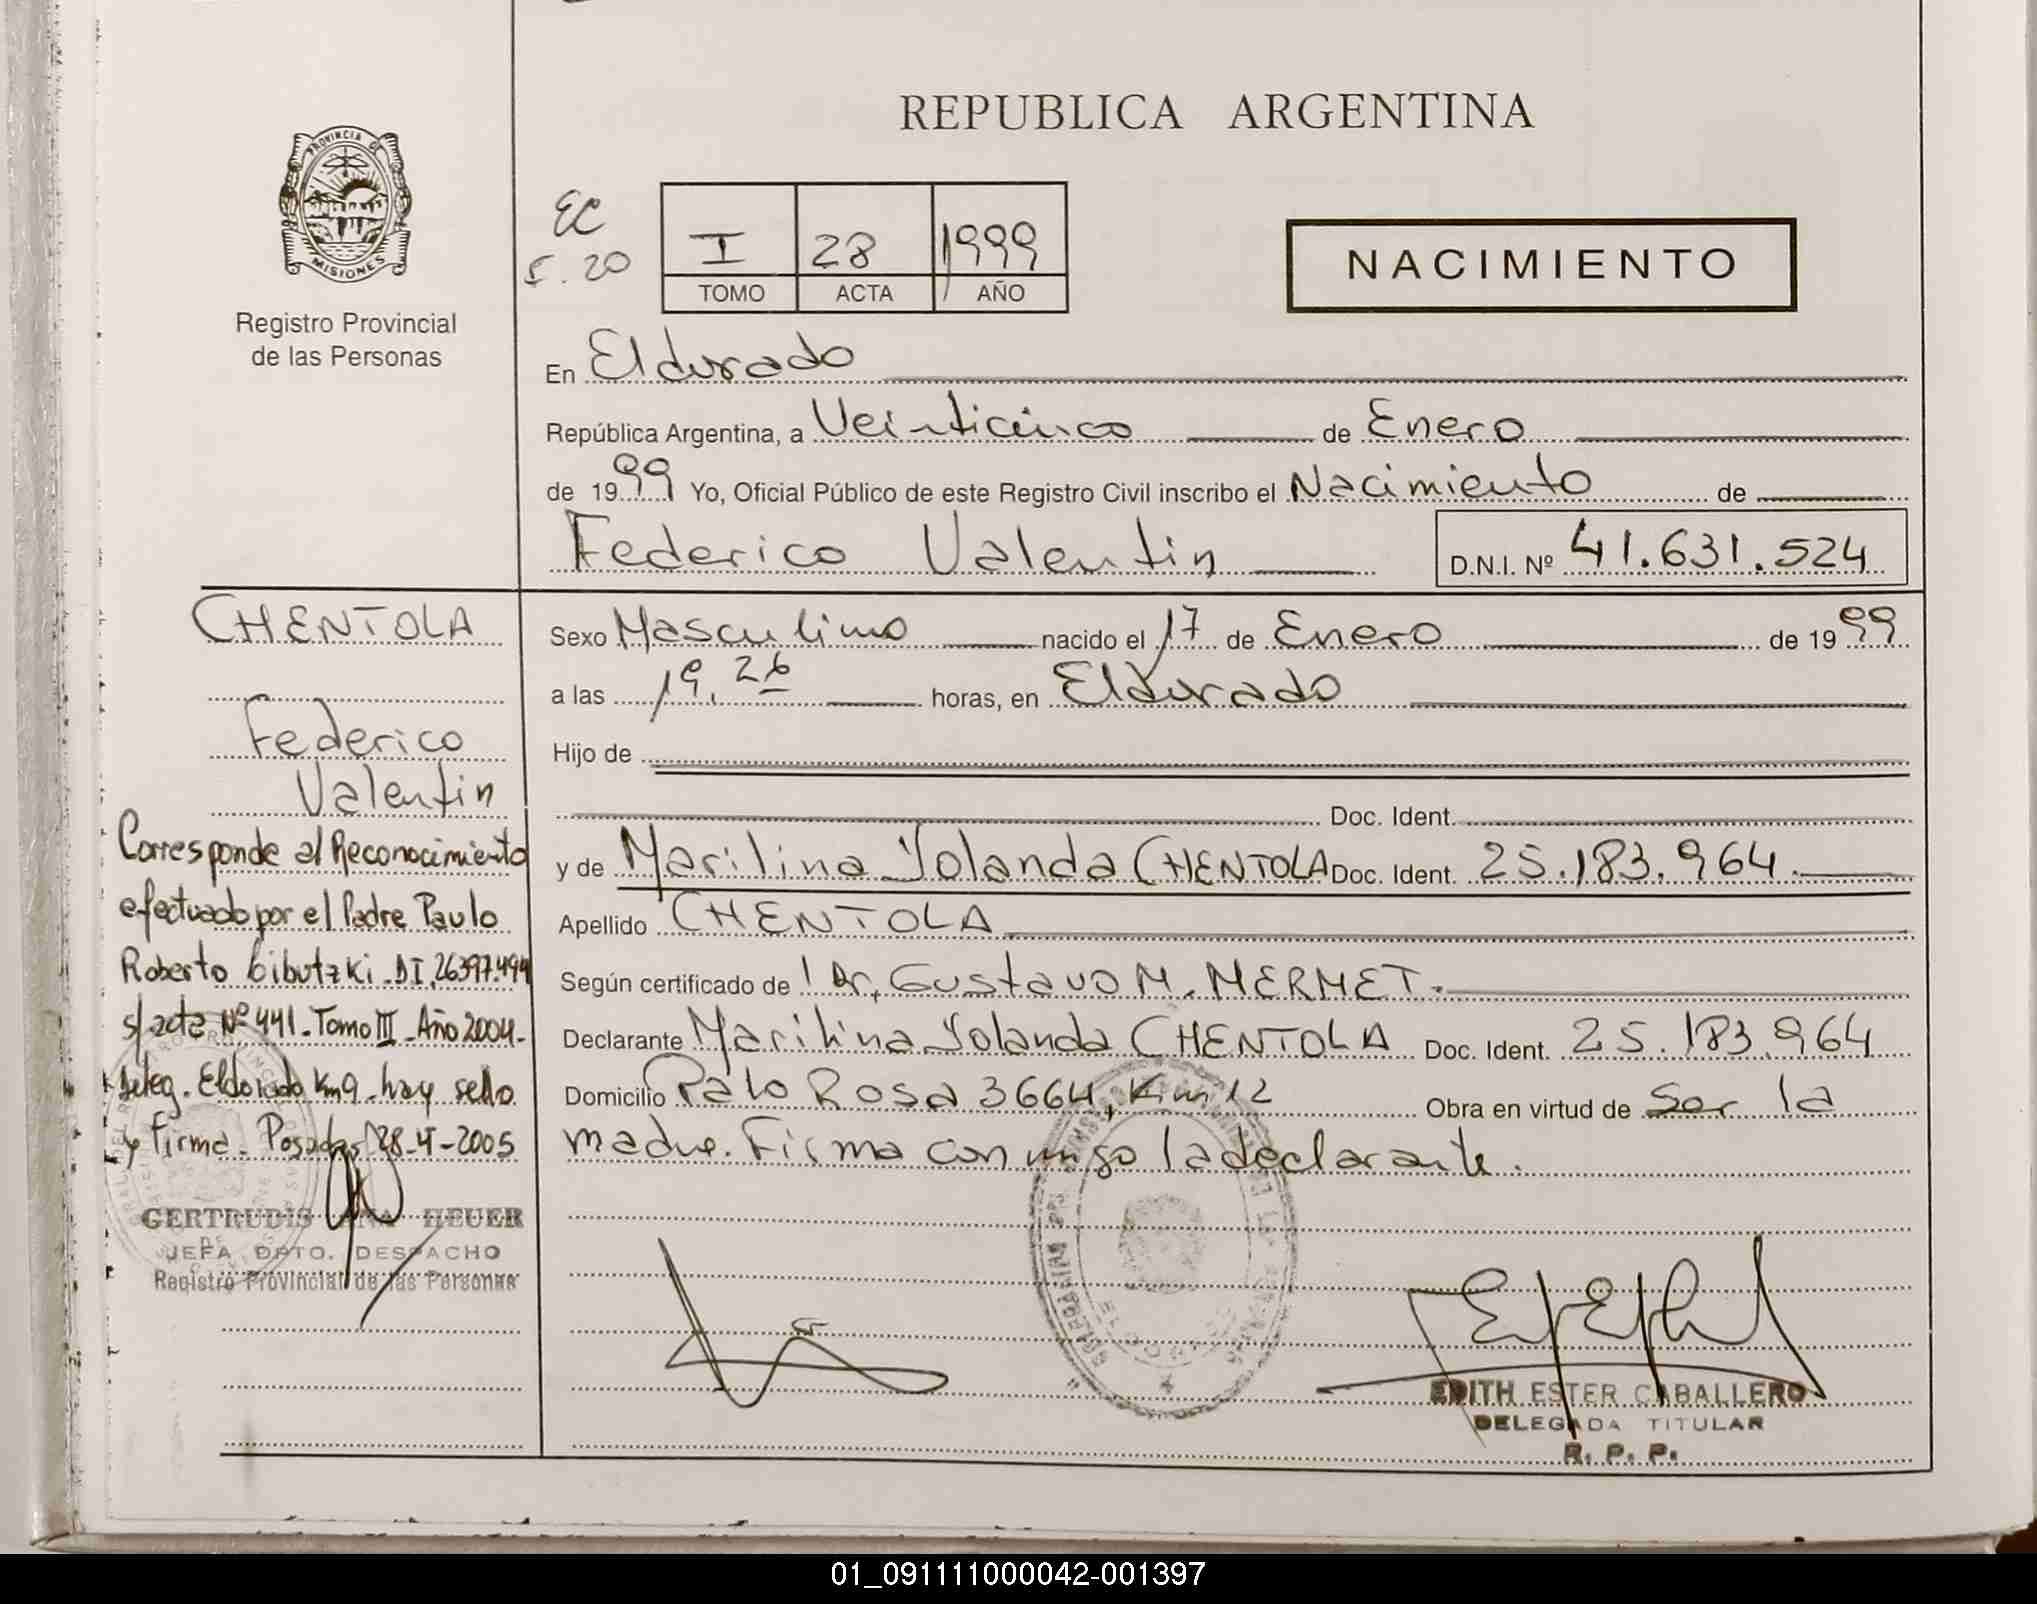 REPUBLICA ARGENTINA
PROVINCIA DE
MISIONES
Registro Provincial
de las Personas
EC
5.20
I 28 1999
TOMO ACTA AÑO
NACIMIENTO
En Eldorado
República Argentina, a Veinticinco de Enero
de 1999 Yo, Oficial Público de este Registro Civil inscribo el Nacimiento de
Federico Valentin D.N.I. Nº 41.631.524
CHENTOLA
Federico
Valentin
Corresponde al Reconocimiento
efectuado por el Padre Paulo
Roberto Cibutzki. DI. 26397.494
s/ acta Nº 441. Tomo III. Año 2004.
Deleg. Eldorado Km9. hay sello
y firma. Posadas, 28-4-2005
GERTRUDIS ANA HEUER
JEFA DPTO. DESPACHO
Registro Provincial de las Personas
Sexo Masculino nacido el 17 de Enero de 1999
a las 19.26 horas, en Eldorado
Hijo de
Doc. Ident.
y de Marilina Yolanda CHENTOLA Doc. Ident. 25.183.964
Apellido CHENTOLA
Según certificado de Dr. Gustavo M. MERMET.
Declarante Marilina Yolanda CHENTOLA Doc. Ident. 25.183.964
Domicilio Palo Rosa 3664, Km 12 Obra en virtud de Ser la
madre. Firma conmigo la declarante.
EDITH ESTER CABALLERO
DELEGADA TITULAR
R. P. P.
01_091111000042-001397